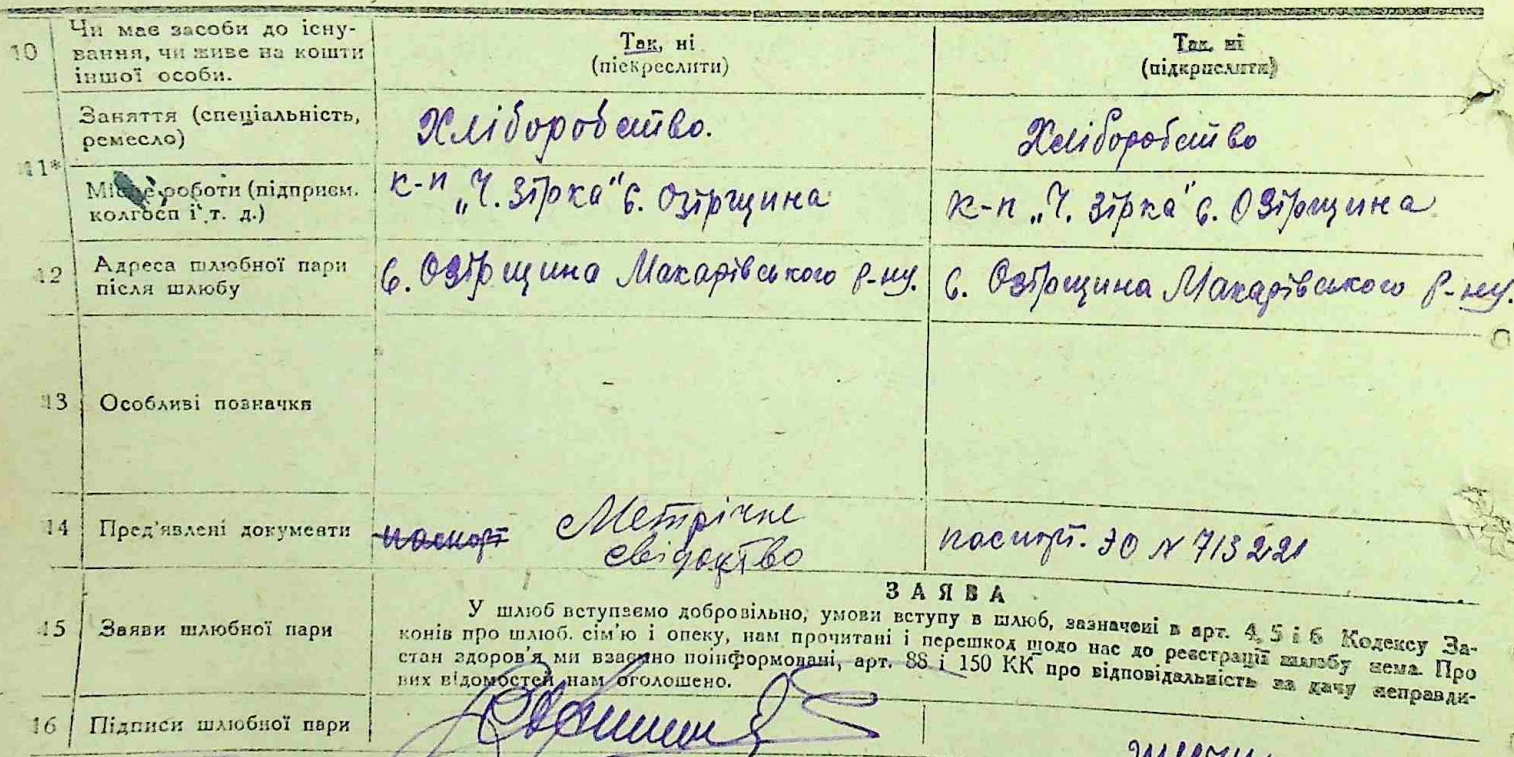 10 Чи має засоби до існу-
вання, чи живе на кошти
іншої особи.
Так, ні
(піскреслити)
Так, ні
(підкрислити)
11*
Заняття (спеціальність,
ремесло)
Хліборобство.
Хліборобство
Місце роботи (підприєм.
колгосп і т. д.)
к-п „Ч. Зірка" с. Озірщина
к-п „Ч. Зірка" с. Озірщина
12 Адреса шлюбної пари
після шлюбу
с. Озірщина Макарівського р-ну.
с. Озірщина Макарівського р-ну.
13 Особливі позначки
14 Пред'явлені документи
паспорт Метрічне
свідоцтво
паспорт. ЭО № 713221
15 Заяви шлюбної пари
ЗАЯВА
У шлюб вступаємо добровільно, умови вступу в шлюб, зазначені в арт. 4, 5 і 6 Кодексу За-
конів про шлюб. сім'ю і опеку, нам прочитані і перешкод щодо нас до реєстрації шлюбу нема. Про
стан здоров'я ми взаємно поінформовані, арт. 88 і 150 КК про відповідальність за дачу неправди-
вих відомостей нам оголошено.
16 Підписи шлюбної пари